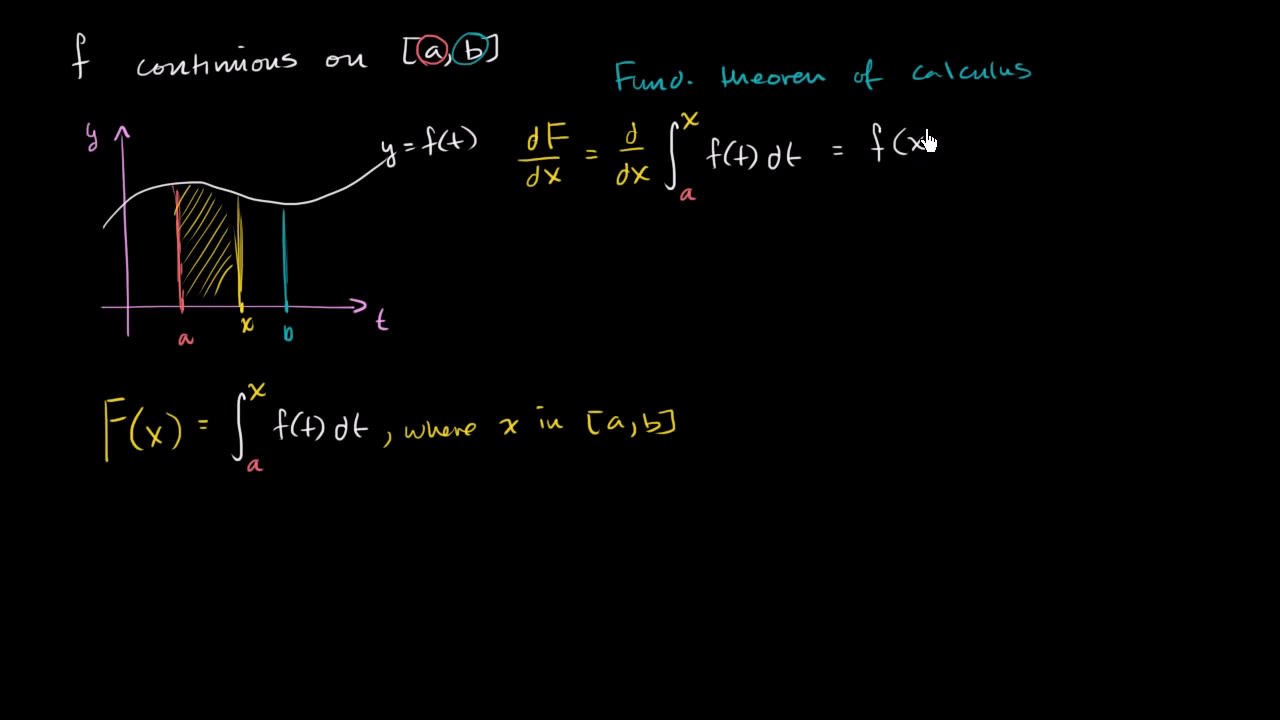 f continuous on [a,b]
Fund. theorem of calculus
y
y = f(t)
dF/dx = d/dx ∫_a^x f(t) dt = f(x
a
x
b
t
F(x) = ∫_a^x f(t) dt, where x in [a,b]